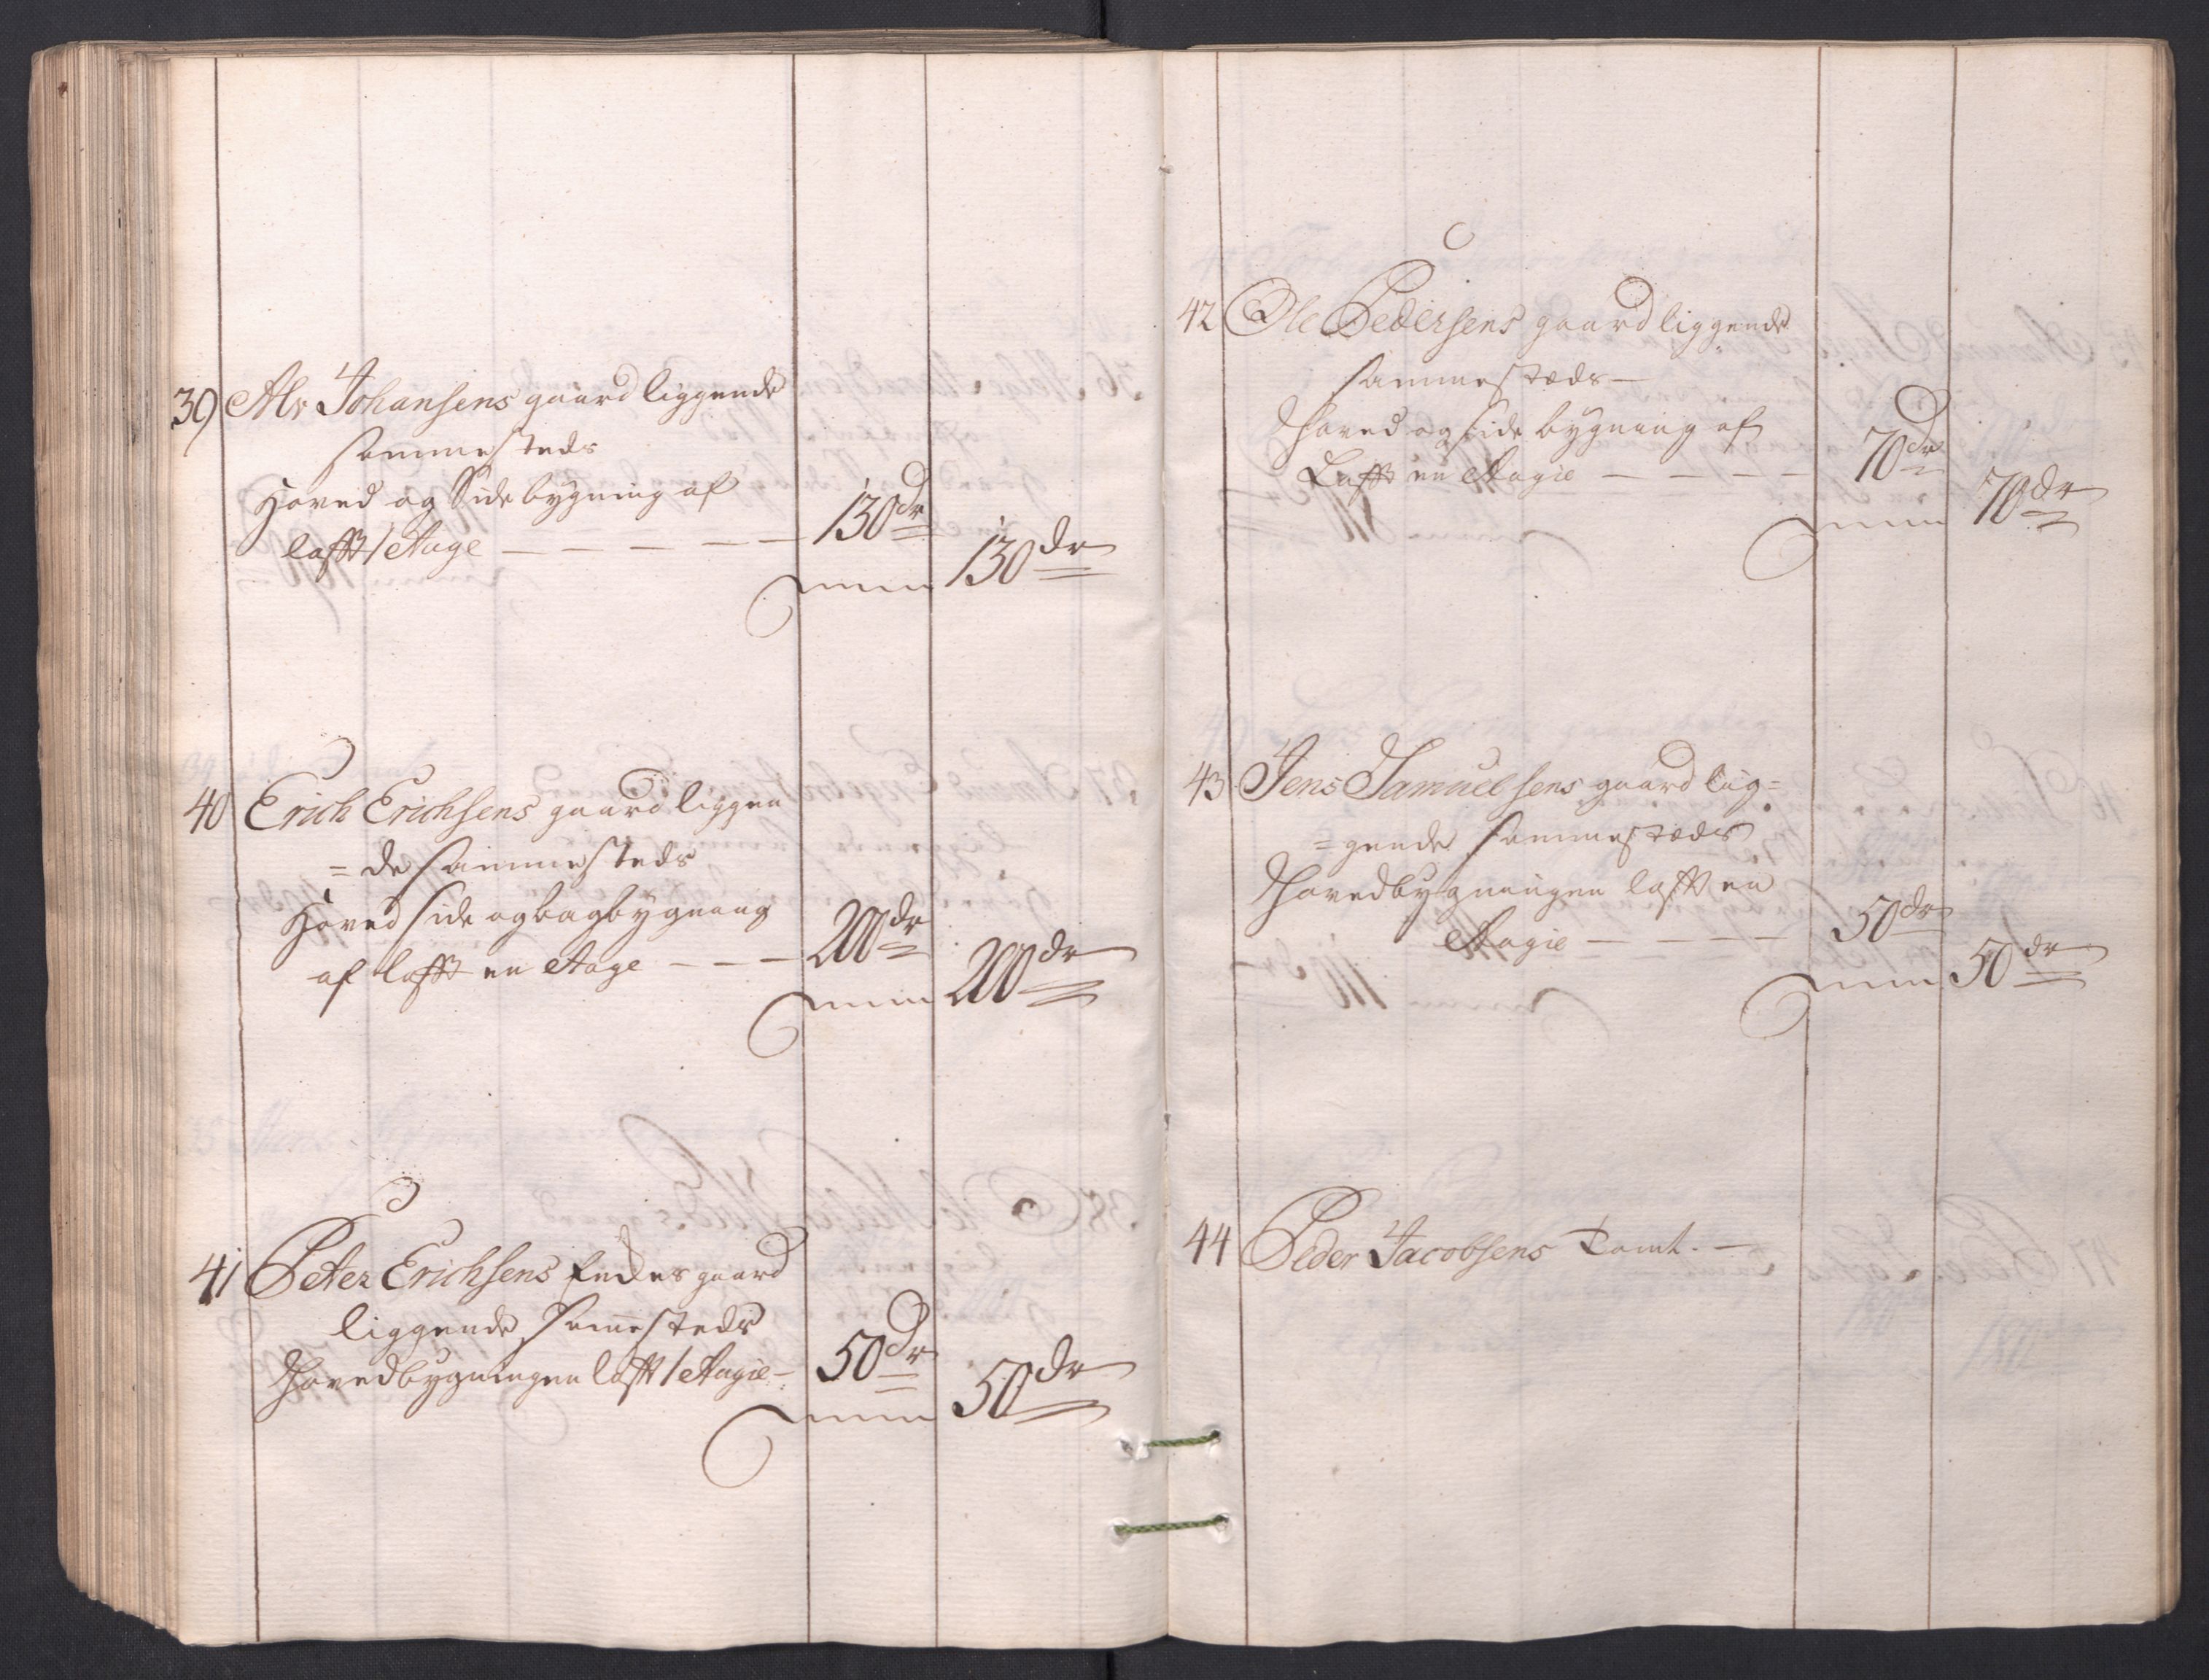 39 Alv Johansens gaard liggende
sammesteds
Hoved og Sidebygning af
lafft 1 Etage — — — — — 130 dr
130 dr
40 Erich Erichsens gaard liggen
=de sammesteds
Hoved side og bagbygning
af lafft en Etage — — — 200 dr
200 dr
41 Peter Erichsens gaard
liggende sammesteds
Hovedbygningen lafft 1 Etagie — 50 dr
50 dr
42 Ole Pedersens gaard liggende
sammesteds —
Hoved og side bygning af
Lafft en Etagie — — — — 70 dr
70 dr
43 Jens Samuelsens gaard lig=
=gende sammesteds
Hovedbygningen lafft en
Etagie — — — — 50 dr
50 dr
44 Peder Jacobsens Tomt. —